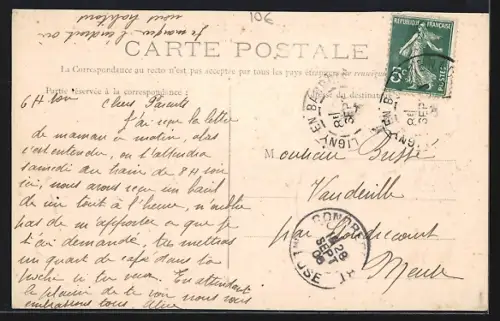 je marque l'endroit où
nous habitons
10€
CARTE POSTALE
La Correspondance au recto n'est pas acceptée par tous les pays étrangers
Partie réservée à la correspondance
du destinataire
RÉPUBLIQUE FRANÇAISE
5c
POSTES
LIGNY-EN-BARROIS
SEPT
6 H soir
Chers Parents
J'ai reçu la lettre
de maman ce matin, alors
c'est entendu, on t'attendra
samedi au train de 8 H soir
ici, nous avons reçu un
de vin tout à l'heure, n'oublie
pas de m'apporter ce que je
t'ai demandé, tu mettras
un quart de café dans ta
poche si tu veux. En attendant
le plaisir de te voir nous vous
embrassons tous. Alice
Monsieur
Vaudeville
par Gondrecourt
Meuse
GONDRECOURT
MEUSE
28
SEPT
08